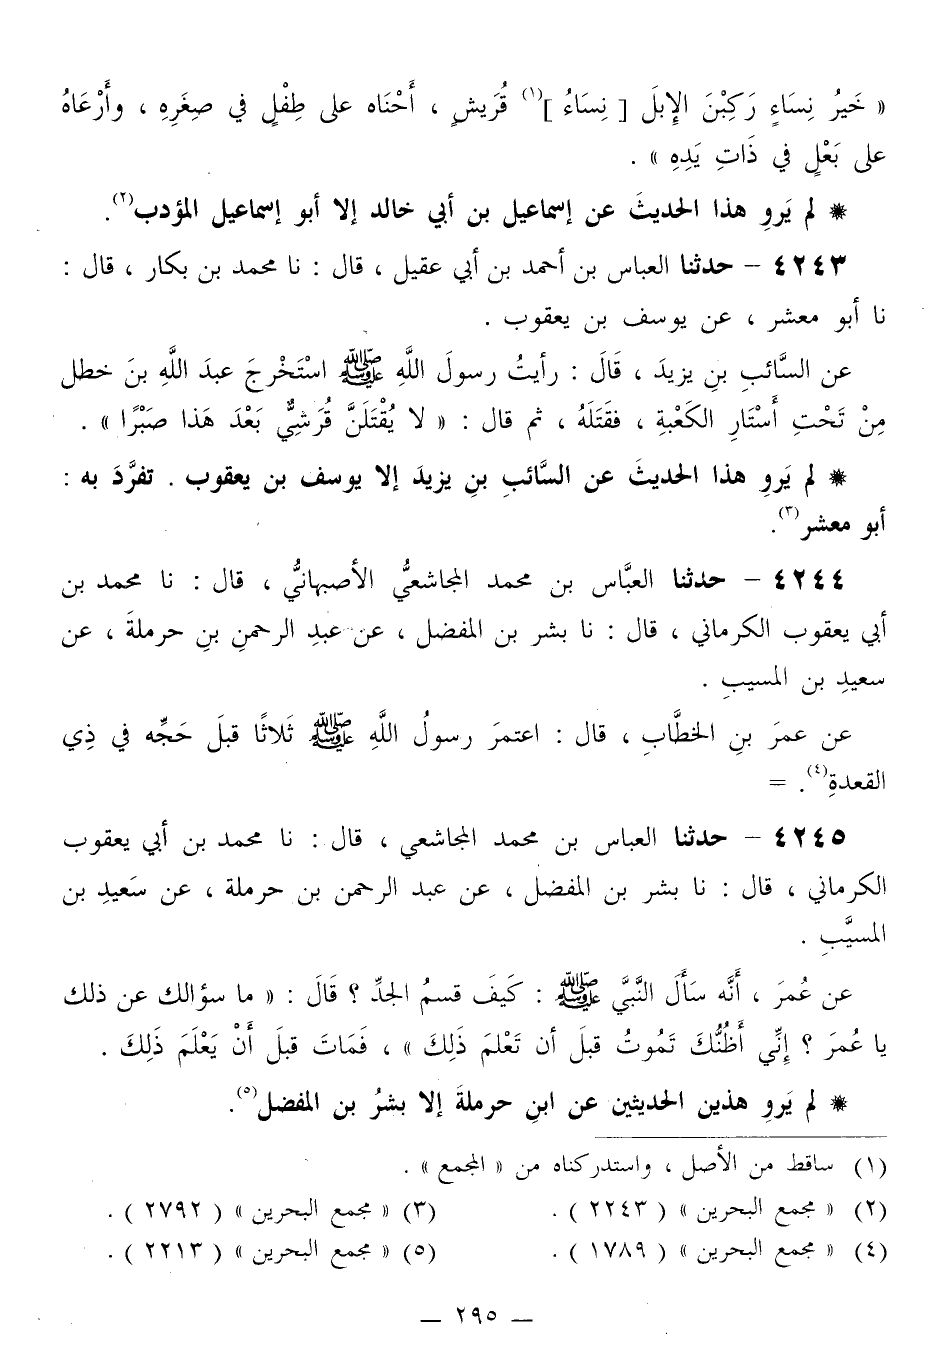 « خَيرُ نِسَاءٍ رَكِبْنَ الإِبلَ [ نِسَاءُ ](١) قُرَيشٍ ، أَحْنَاه على طِفْلٍ في صِغَرِهِ ، وأَرْعَاهُ
على بَعْلٍ في ذَاتِ يَدِهِ » .
* لم يَروِ هذا الحديثَ عن إسماعيل بن أبي خالد إلا أبو إسماعيل المؤدب(٢).
٤٢٤٣ – حدثنا العباس بن أحمد بن أبي عقيل ، قال : نا محمد بن بكار ، قال :
نا أبو معشر ، عن يوسف بن يعقوب .
عن السَّائبِ بنِ يزيدَ ، قَالَ : رأيتُ رسولَ اللَّهِ ﷺ اسْتَخْرجَ عبدَ اللَّهِ بنَ خطل
مِنْ تَحْتِ أَسْتَارِ الكَعْبةِ ، فقَتَلَهُ ، ثم قال : « لا يُقْتَلَنَّ قُرَشِيٌّ بَعْدَ هَذا صَبْرًا » .
* لم يَروِ هذا الحديثَ عن السَّائبِ بنِ يزيدَ إلا يوسف بن يعقوب . تفرَّدَ به :
أبو معشر(٣).
٤٢٤٤ – حدثنا العبَّاس بن محمد المجاشعيُّ الأصبهانيُّ ، قال : نا محمد بن
أبي يعقوب الكرماني ، قال : نا بشر بن المفضل ، عن عبدِ الرحمنِ بنِ حرملةَ ، عن
سعيدِ بن المسيبِ .
عن عمرَ بنِ الخطَّابِ ، قال : اعتمرَ رسولُ اللَّهِ ﷺ ثَلاثًا قبلَ حَجِّه في ذِي
القعدةِ(٤). =
٤٢٤٥ – حدثنا العباس بن محمد المجاشعي ، قال : نا محمد بن أبي يعقوب
الكرماني ، قال : نا بشر بن المفضل ، عن عبد الرحمن بن حرملة ، عن سَعيدِ بن
المسيَّبِ .
عن عُمرَ ، أَنَّه سَأَلَ النَّبيَّ ﷺ : كَيفَ قسمُ الجدِّ ؟ قَالَ : « ما سؤالك عن ذلك
يا عُمرَ ؟ إنِّي أَظُنُّكَ تَموتُ قبلَ أن تَعْلمَ ذَلِكَ » ، فَمَاتَ قبلَ أَنْ يَعْلَمَ ذَلِكَ .
* لم يَروِ هذين الحديثين عن ابنِ حرملةَ إلا بشرُ بن المفضل(٥).
(١) ساقط من الأصل ، واستدركناه من « المجمع » .
(٢) « مجمع البحرين » ( ٢٢٤٣ ) . (٣) « مجمع البحرين » ( ٢٧٩٢ ) .
(٤) « مجمع البحرين » ( ١٧٨٩ ) . (٥) « مجمع البحرين » ( ٢٢١٣ ) .
– ٢٩٥ –